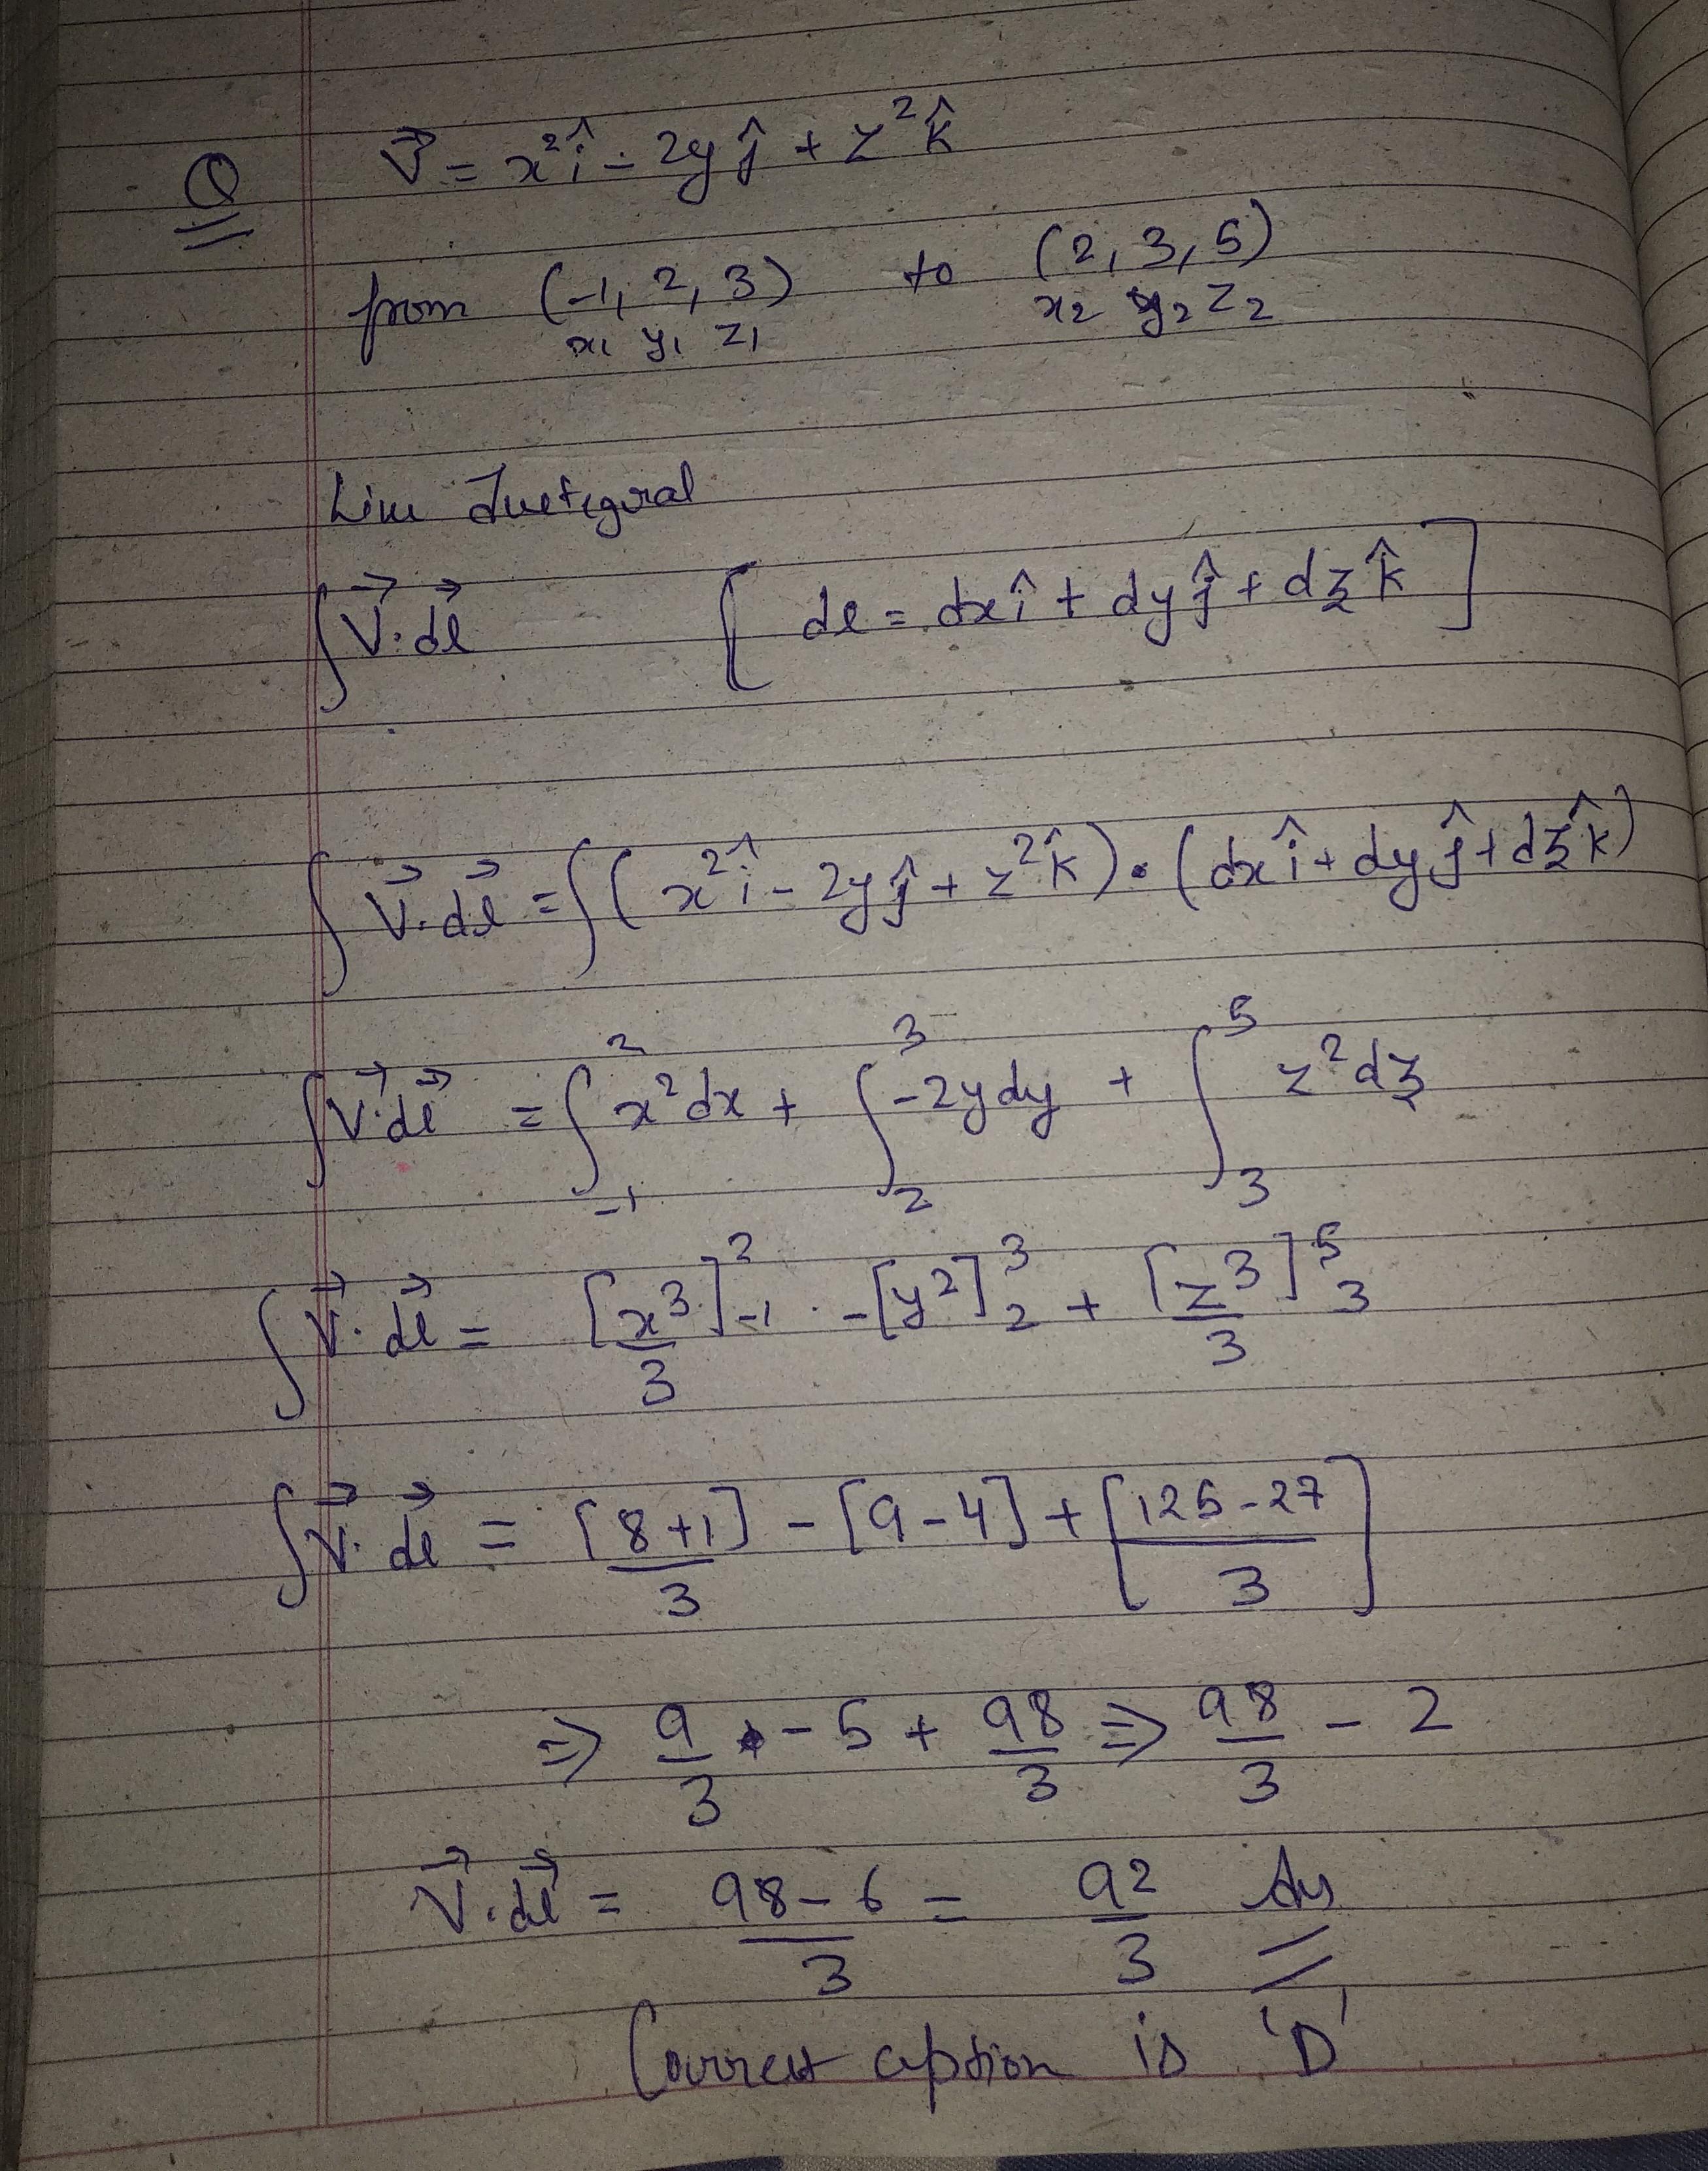 Q V⃗ = x²î - 2yĵ + z²k̂
from (-1, 2, 3) to (2, 3, 5)
x₁ y₁ z₁ x₂ y₂ z₂
Line Integral
∫V⃗·dl⃗ [ dl = dxî + dyĵ + dzk̂ ]
∫V⃗·dl⃗ = ∫(x²î - 2yĵ + z²k̂)·(dxî + dyĵ + dzk̂)
∫V⃗·dl⃗ = ∫₋₁² x²dx + ∫₂³ -2ydy + ∫₃⁵ z²dz
∫V⃗·dl⃗ = [x³/3]₋₁² - [y²]₂³ + [z³/3]₃⁵
∫V⃗·dl⃗ = [8+1]/3 - [9-4] + [125-27/3]
⇒ 9/3 - 5 + 98/3 ⇒ 98/3 - 2
V⃗·dl⃗ = 98-6/3 = 92/3 Ans
Correct option is 'D'